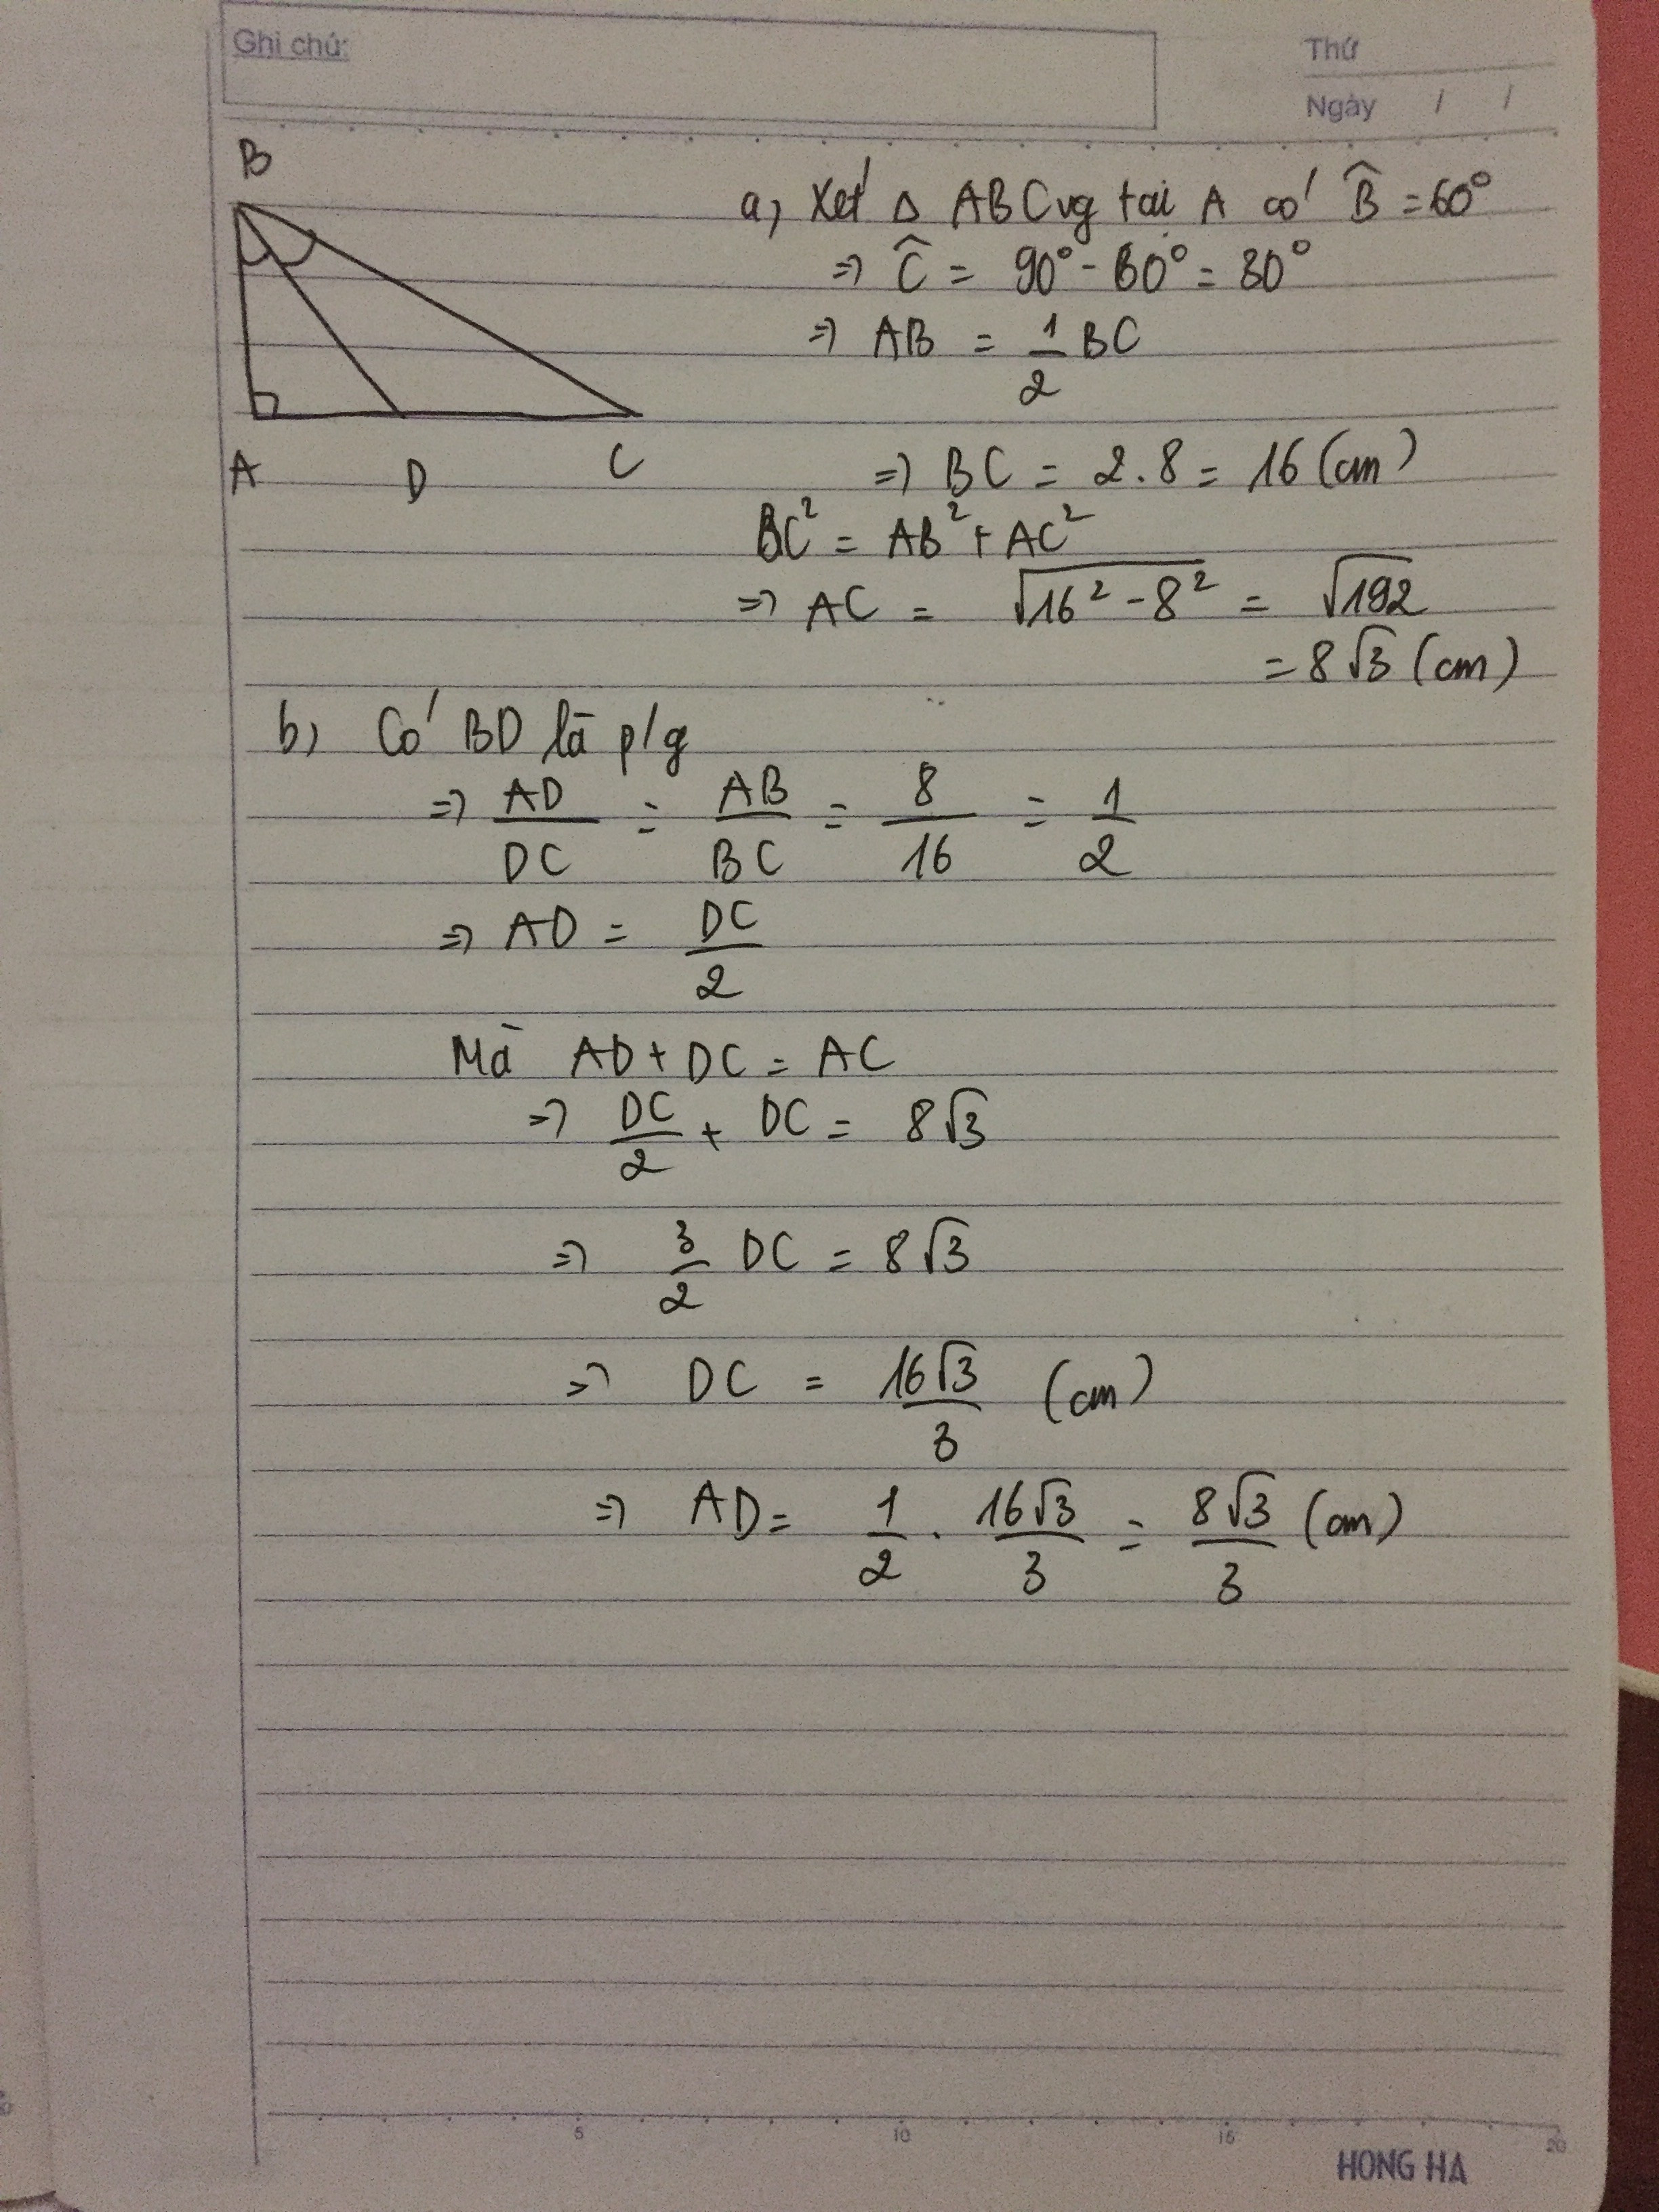 Ghi chú:
Thứ
Ngày / /
B
A D C
a, Xét Δ ABC vg tại A có B̂ = 60°
=> Ĉ = 90° - 60° = 30°
=> AB = 1/2 BC
=> BC = 2.8 = 16 (cm)
BC² = AB² + AC²
=> AC = √(16² - 8²) = √192
= 8√3 (cm)
b, Có BD là p/g
=> AD/DC = AB/BC = 8/16 = 1/2
=> AD = DC/2
Mà AD + DC = AC
=> DC/2 + DC = 8√3
=> 3/2 DC = 8√3
=> DC = 16√3/3 (cm)
=> AD = 1/2 . 16√3/3 = 8√3/3 (cm)
5 10 15 20
HONG HA